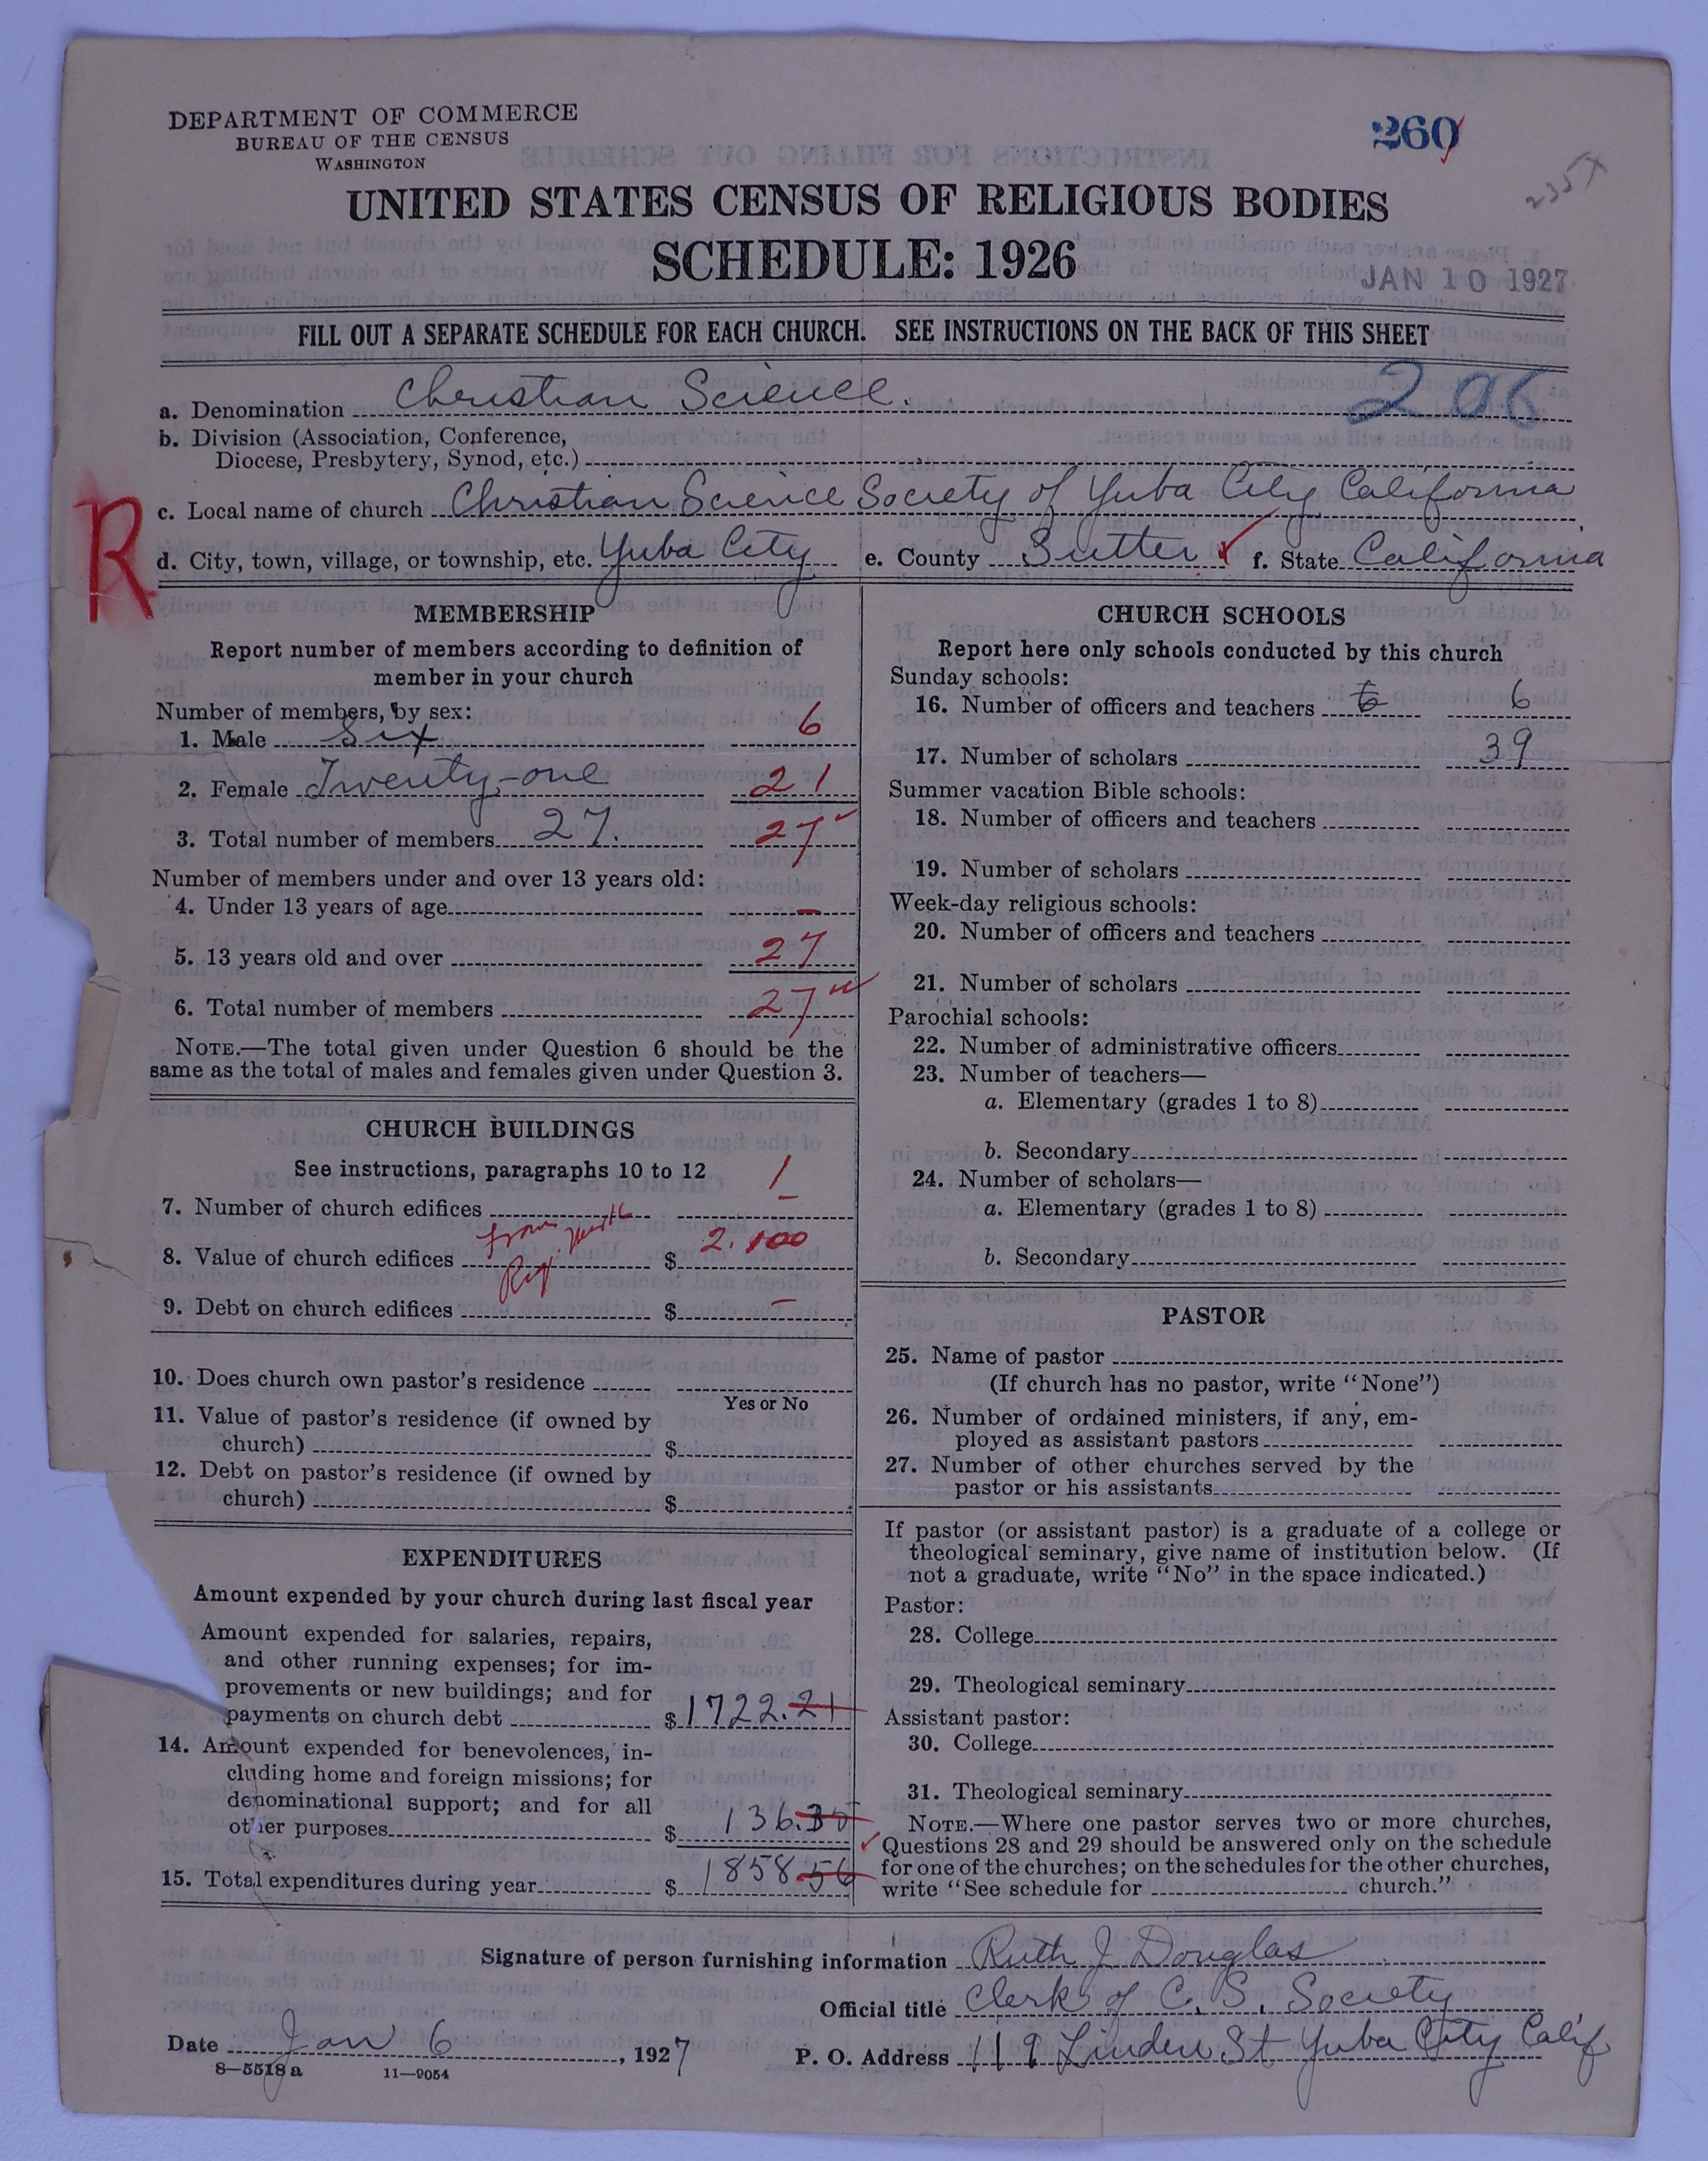 DEPARTMENT OF COMMERCE
BUREAU OF THE CENSUS
WASHINGTON
260
235X
UNITED STATES CENSUS OF RELIGIOUS BODIES
SCHEDULE: 1926
JAN 10 1927
FILL OUT A SEPARATE SCHEDULE FOR EACH CHURCH. SEE INSTRUCTIONS ON THE BACK OF THIS SHEET
a. Denomination Christian Science. 206
b. Division (Association, Conference,
Diocese, Presbytery, Synod, etc.)
R
c. Local name of church Christian Science Society of Yuba City California
d. City, town, village, or township, etc. Yuba City e. County Sutter f. State California
MEMBERSHIP
Report number of members according to definition of
member in your church
Number of members, by sex:
1. Male Six 6
2. Female Twenty-one 21
3. Total number of members 27. 27
Number of members under and over 13 years old:
4. Under 13 years of age –
5. 13 years old and over 27
6. Total number of members 27
NOTE.—The total given under Question 6 should be the
same as the total of males and females given under Question 3.
CHURCH BUILDINGS
See instructions, paragraphs 10 to 12
7. Number of church edifices 1
8. Value of church edifices From $ 2.100
9. Debt on church edifices $ –
10. Does church own pastor's residence
Yes or No
11. Value of pastor's residence (if owned by
church) $
12. Debt on pastor's residence (if owned by
church) $
EXPENDITURES
Amount expended by your church during last fiscal year
Amount expended for salaries, repairs,
and other running expenses; for im-
provements or new buildings; and for
payments on church debt $1722.21
14. Amount expended for benevolences, in-
cluding home and foreign missions; for
denominational support; and for all
other purposes $ 136.35
15. Total expenditures during year $ 1858.56
CHURCH SCHOOLS
Report here only schools conducted by this church
Sunday schools:
16. Number of officers and teachers 6 6
17. Number of scholars 39
Summer vacation Bible schools:
18. Number of officers and teachers
19. Number of scholars
Week-day religious schools:
20. Number of officers and teachers
21. Number of scholars
Parochial schools:
22. Number of administrative officers
23. Number of teachers—
a. Elementary (grades 1 to 8)
b. Secondary
24. Number of scholars—
a. Elementary (grades 1 to 8)
b. Secondary
PASTOR
25. Name of pastor
(If church has no pastor, write "None")
26. Number of ordained ministers, if any, em-
ployed as assistant pastors
27. Number of other churches served by the
pastor or his assistants
If pastor (or assistant pastor) is a graduate of a college or
theological seminary, give name of institution below. (If
not a graduate, write "No" in the space indicated.)
Pastor:
28. College
29. Theological seminary
Assistant pastor:
30. College
31. Theological seminary
NOTE.—Where one pastor serves two or more churches,
Questions 28 and 29 should be answered only on the schedule
for one of the churches; on the schedules for the other churches,
write "See schedule for church."
Signature of person furnishing information Ruth J Douglas
Official title Clerk of C. S. Society
Date Jan 6, 1927 P. O. Address 119 Linden St Yuba City Calif
8—5518 a 11—9054